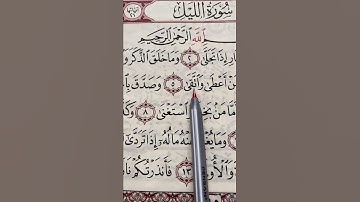 سُورَةُ اللَّيْلِ
اللَّهِ الرَّحْمَٰنِ الرَّحِيمِ
ارِ إِذَا تَجَلَّىٰ ٢ وَمَا خَلَقَ الذَّكَرَ وَ
مَنْ أَعْطَىٰ وَاتَّقَىٰ ٥ وَصَدَّقَ بِا
مَّا مَنْ بَخِلَ اسْتَغْنَىٰ ٨ وَكَ
وَمَا يُغْنِي عَنْهُ مَالُهُ إِذَا تَرَدَّىٰ
١٣ فَأَنذَرْتُكُمْ نَا